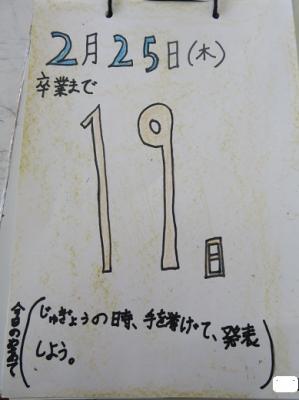 2月25日(木)
卒業まで
19日
今日のめあて
じゅぎょうの時、手を挙げて、発表
しよう。